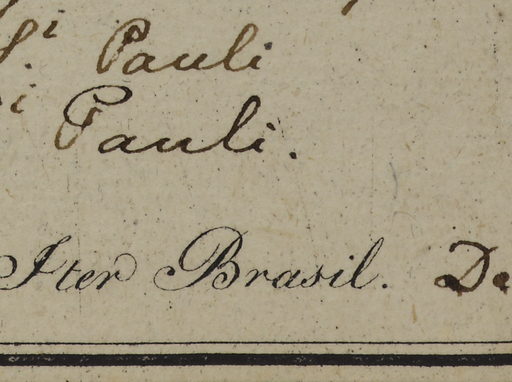 S.i Pauli
i Pauli.
Iter Brasil. De